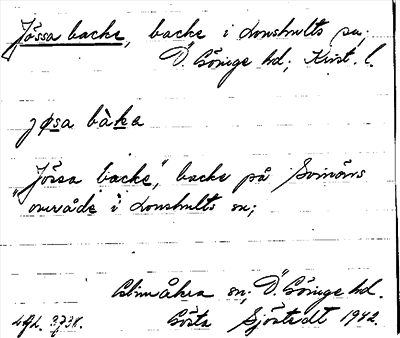 Jössa backe, backe i Lonshults sn;
Ö. Göinge hd; Krist. l.
jøsa bàka
"Jössa backe", backe på Svinöns
område i Lonshults sn;
Glimåkra sn; Ö. Göinge hd.
Gösta Sjöstedt 1942.